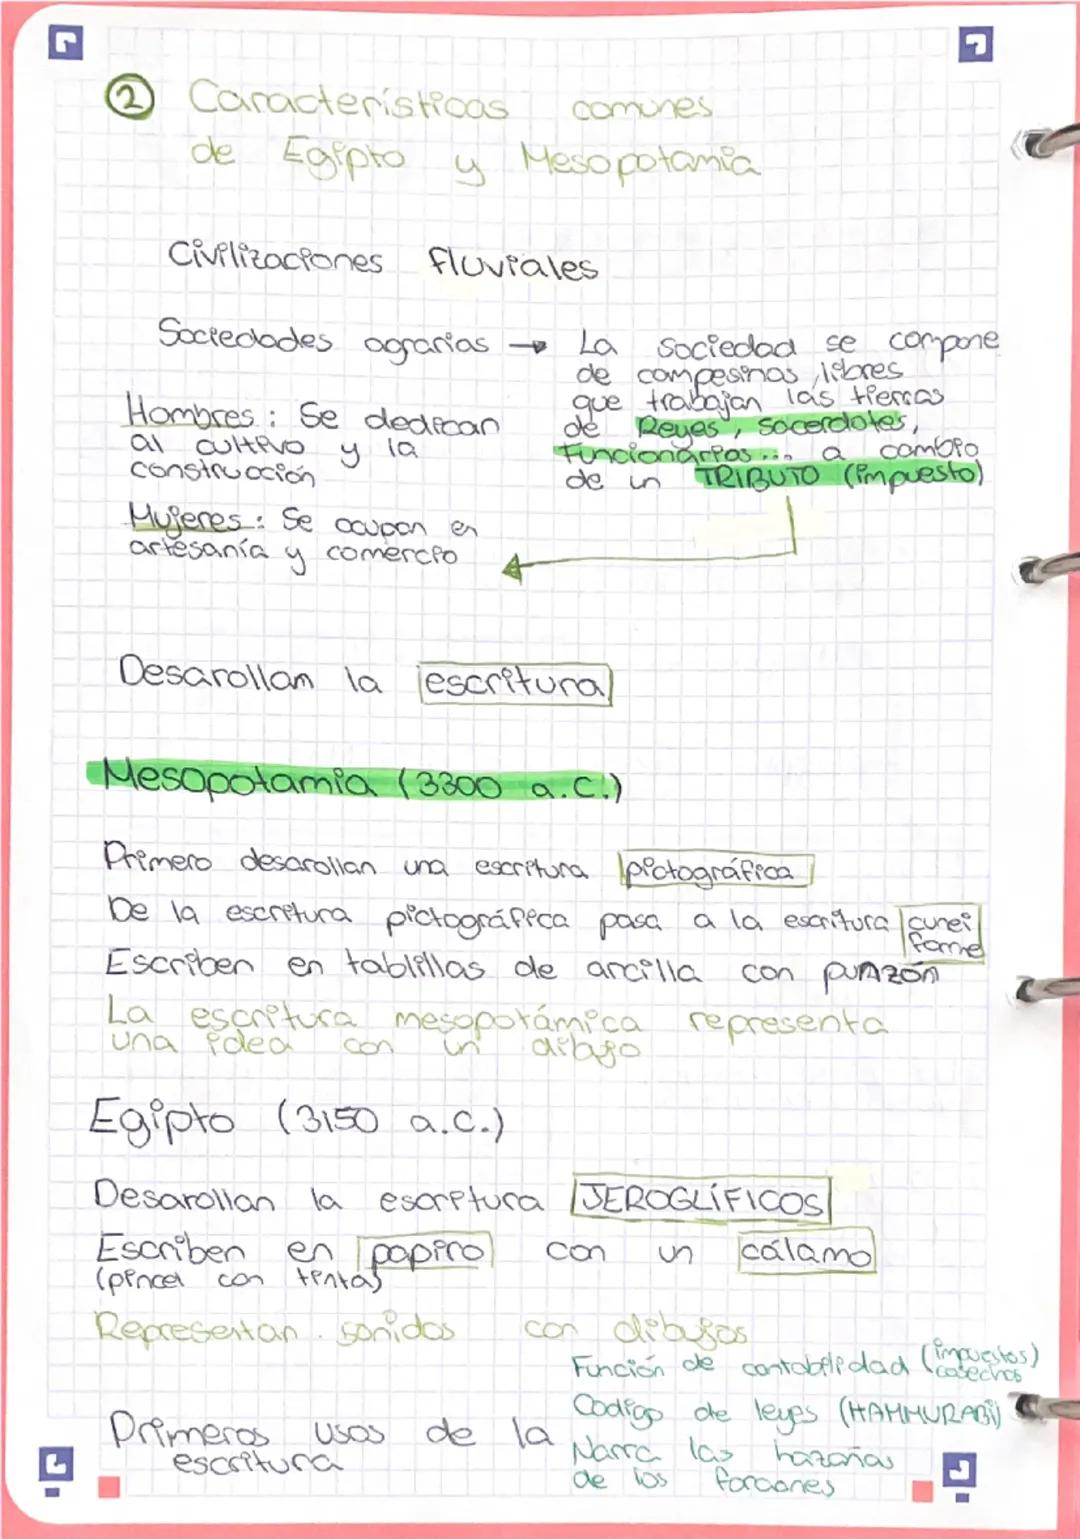 ② Características comunes
de Egipto y Mesopotamia
Civilizaciones fluviales
Sociedades agrarias → La sociedad se compone
de campesinos libres
que trabajan las tierras
de Reyes, sacerdotes,
funcionarios... a cambio
de un TRIBUTO (impuesto)
Hombres: Se dedican
al cultivo y la
construcción
Mujeres: Se ocupan en
artesanía y comercio
Desarollan la escritura
Mesopotamia (3300 a.C.)
Primero desarollan una escritura pictográfica
De la escritura pictográfica pasa a la escritura cunei
forme
Escriben en tablillas de arcilla con punzón
La escritura mesopotámica representa
una idea con un dibujo
Egipto (3150 a.C.)
Desarollan la escritura JEROGLÍFICOS
Escriben en papiro con un cálamo
(pincel con tinta)
Representan sonidos con dibujos
Primeros usos de la
escritura
Función de contabilidad (impuestos)
cosechas
Codigo de leyes (HAMMURABi)
Narra las hazañas
de los faraones